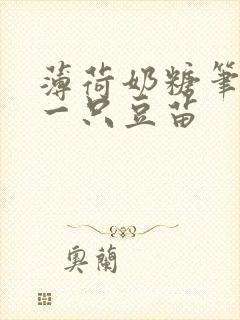 薄荷奶糖笔
一只豆苗
奥蘭